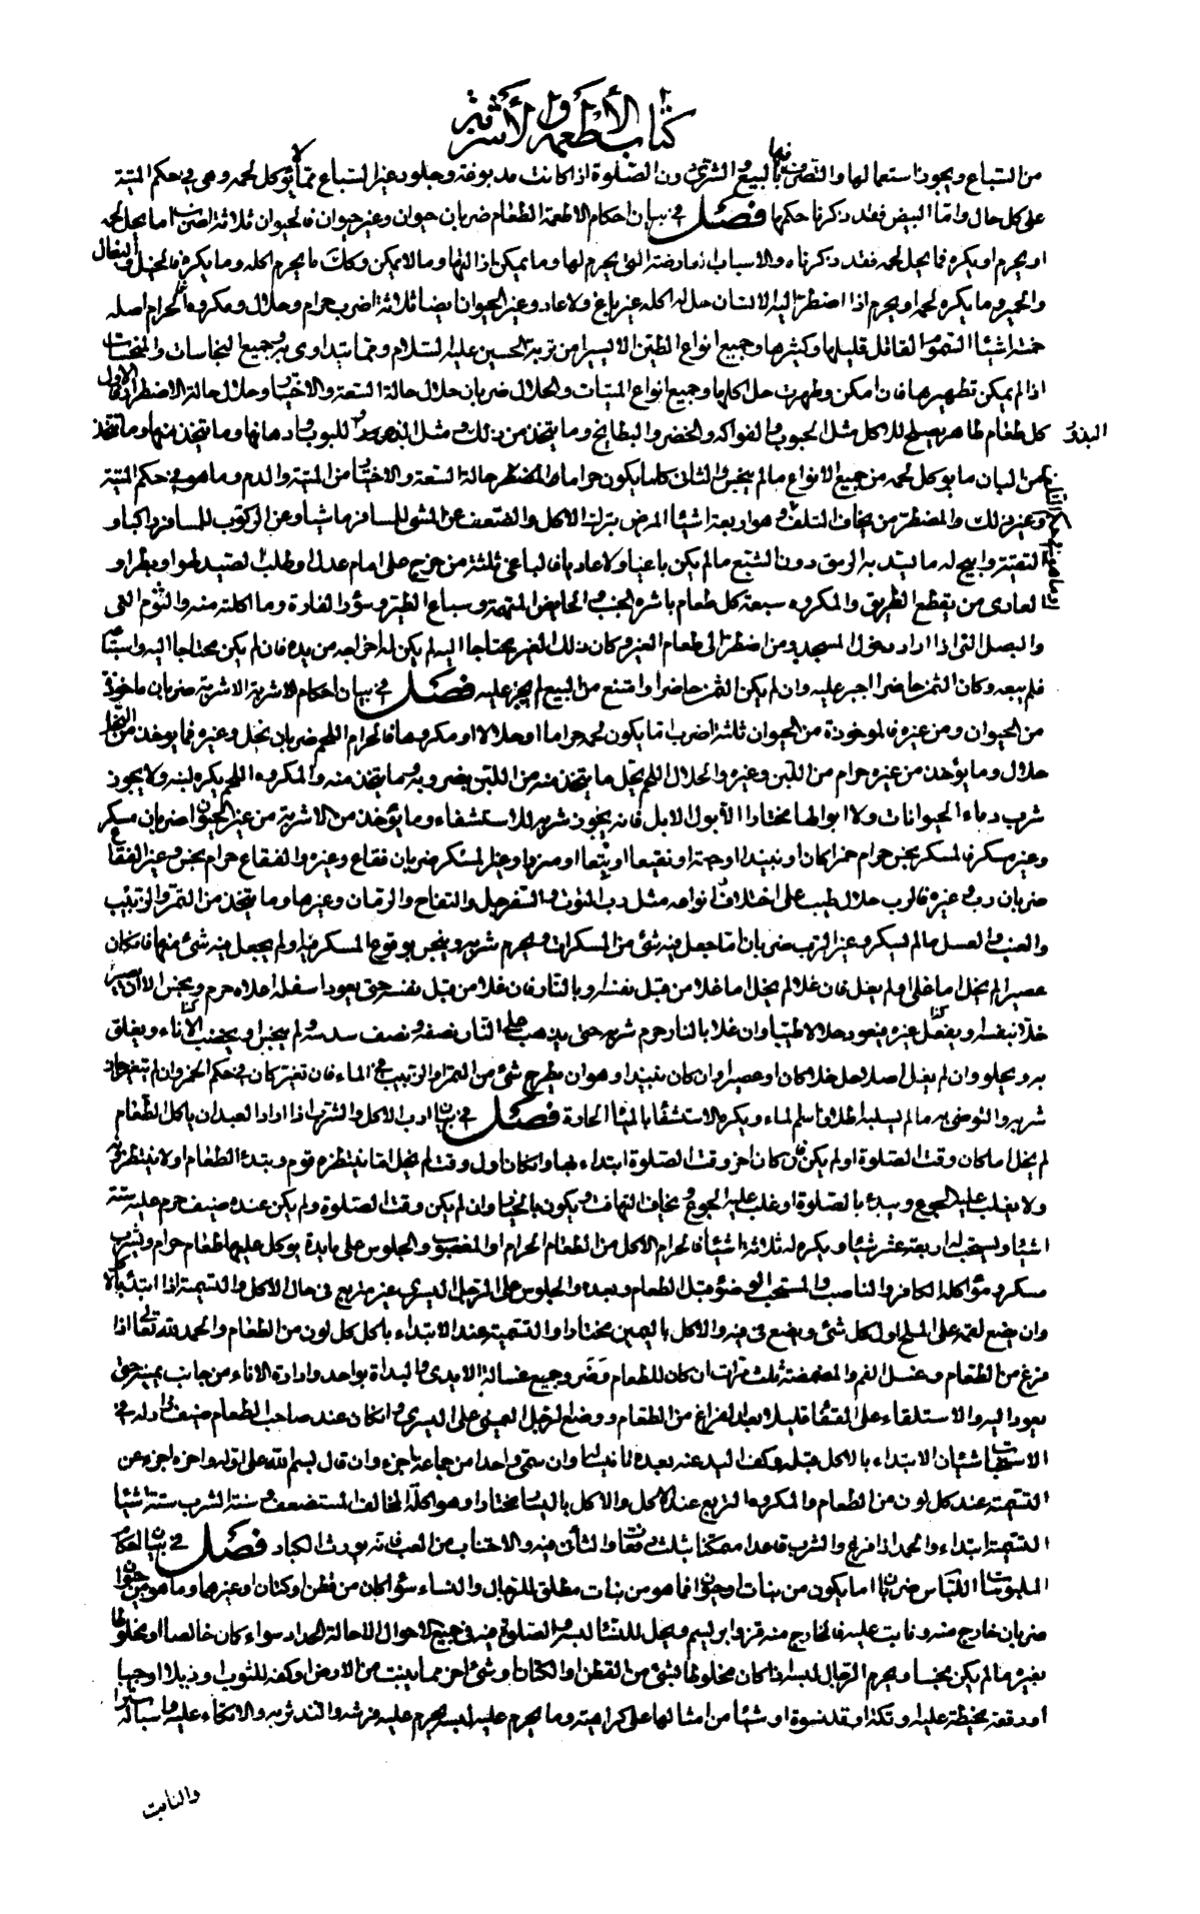 كتاب الأطعمة والأشربة
من السباع ويجوز استعمالها والتصرف فيها بالبيع والشرى دون الصلوة اذا كانت مدبوغة وجلود غير السباع مما لا يؤكل لحمه وهى في حكم الميتة
على كل حال واما البيض فقد ذكرنا حكمها فصل في بيان احكام الاطعمة الطعام ضربان حيوان وغير حيوان فالحيوان ثلاثة اضرب اما يحل لحمه
او يحرم او يكره فما يحل لحمه فقد ذكرناه والاسباب العارضة التى يحرم لها وما يمكن ازالتها وما لا يمكن وكذلك ما يحرم اكله وما يكره فالخيل والبغال
والحمير وما يكره لحمه او يحرم اذا اضطر اليه الانسان حل له اكله غير باغ ولا عاد وغير الحيوان ايضا ثلاثة اضرب حرام وحلال ومكروه فالحرام اصله
خمسة اشياء السموم القاتل قليلها وكثيرها وجميع انواع الطين الا اليسير من تربة الحسين عليه السلام ومما يتداوى به وجميع النجاسات والمنجسات
اذا لم يمكن تطهيرها فان امكن وطهرت حل اكلها وجميع انواع الميتات والحلال ضربان حلال حالة السعة والاختيار وحلال حالة الاضطرار فالاول
كل طعام طاهر يصلح للاكل مثل الحبوب والفواكه والخضر والبطايخ وما يتخذ من ذلك ومثل البذور واللبوب وادهانها وما يتخذ منها وما يتخذ
البذور
من البان ما يؤكل لحمه من جميع الانواع ما لم ينجس والثانى كلما يكون حراما والمضطر حالة السعة والاختيار من الميتة والدم وما هو في حكم الميتة
وغير ذلك والمضطر من يخاف التلف وهو اربعة اشياء المرض بترك الاكل والضعف عن المشى للمسافر ماشيا وعن الركوب للمسافر راكبا و
التقتير وابيح له ما ليسد به الرمق دون الشبع ما لم يكن باغيا ولا عاديا فالباغى ثلثة من خرج على امام عدل او طلب الصيد لهوا وبطرا و
العادى من يقطع الطريق والمكروه سبعة كل طعام باشره الجنب والحايض المتهمة وسباع الطير وسؤر الفارة وما اكلته منه والثوم النى
والبصل النى اذا اراد دخول المسجد ومن اضطر الى طعام الغير وكان ذلك الغير محتاجا اليه لم يكن له اخراجه من يده فان لم يكن محتاجا اليه واستباعه
فلم يبعه وكان الثمن حاضرا اجبر عليه وان لم يكن الثمن حاضرا وامتنع من البيع لم يجبر عليه فصل في بيان احكام الاشربة الاشربة ضربان ماخوذة
من الحيوان ومن غيره فالموخوذة من الحيوان ثلثة اضرب اما يكون لحمه حراما او حلالا او مكروها فالحرام اللحم ضربان نحل وغيره فما يوخذ من النحل
حلال وما يؤخذ من غيره حرام من اللبن وغيره والحلال اللحم يحل ما يتخذ منه من اللبن بضروبه وما يتخذ منه والمكروه اللحم يكره لبنه ولا يجوز
شرب دماء الحيوانات ولا ابوالها مختارا الا بول الابل فانه يجوز شربه للاستشفاء وما يؤخذ من الاشربة من غير الحيوان ضربان مسكر
وغير مسكر فالمسكر نجس حرام خمرا كان او نبيذا او جعة او نقيعا او بتعا او مزرا وغير المسكر ضربان فقاع وغيره والفقاع حرام نجس وغير الفقاع
ضربان رب وغيره فالرب حلال طيب على اختلاف انواعه مثل رب التوت والسفرجل والتفاح والرمان وغيرها وما يتخذ من التمر والزبيب
والعنب والعسل ما لم يسكر وغير الرب ضربان اما جعل فيه شئ من المسكرات ويحرم شربه وينجس بوقوع المسكر فيه او لم يجعل فيه شئ منها فان كان
عصيرا لم يخل اما غلى او لم يغل فان غلا لم يخل اما غلا من قبل نفسه او بالنار فان غلا من قبل نفسه حتى يعود اسفله اعلاه حرم ونجس الا ان يصير
خلا بنفسه او بفعل غيره فيعود حلالا طيبا وان غلا بالنار حرم شربه حتى يذهب على النار نصفه ونصف سدسه ولم ينجس او يخضب الاناء ويعلق
به ويحلو وان لم يغل اصلا حل خلا كان او عصيرا وان كان نبيذا وهو ان يطرح شئ من التمر او الزبيب في الماء فان تغير كان في حكم الخمر وان لم يتغير جاز
شربه والتوضى به ما لم يسلبه اطلاق اسم الماء ويكره الاستشفاء بالمياه الحارة فصل في بيان ادب الاكل والشرب اذا اراد العبد ان ياكل الطعام
لم يخل اما كان وقت الصلوة او لم يكن فان كان اخر وقت الصلوة ابتداء بها وان كان اول وقت لم يخل اما ينتظره قوم ويبتدئ الطعام او لا ينتظر فيه
ولا يغلب عليه الجوع ويبدء بالصلوة او غلب عليه الجوع ويخاف التهافت ويكون بالخيار وان لم يكن وقت الصلوة ولم يكن عنده ضيف حرم عليه ستة
اشياء ويستحب له اربعة عشر شيئا ويكره له ثلاثة اشياء فالحرام الاكل من الطعام الحرام او المغصوب والجلوس على مايدة يؤكل عليها طعام حرام ويشرب
مسكر ومؤاكلة الكافر والناصب والمستحب الوضوء قبل الطعام وبعده والجلوس على الرجل اليسرى غير متربع فى حال الاكل والتسمية اذا ابتدأ بالاكل
وان يضع لقمة على الملح اول كل شئ ويضع فى فيه والاكل باليمين مختارا والتسمية عند الابتداء باكل كل لون من الطعام والحمد لله تعالى اذا
فرغ من الطعام وغسل الفم والمضمضة ثلث مرات ان كان للطعام وضر وجميع غسالة الايدى والبداة بواحد وادارة الاناء من جانب يمينه حتى
يعود اليه والاستلقاء على القفا قليلا بعد الفراغ من الطعام ووضع الرجل اليمنى على اليسرى وان كان عند صاحب الطعام ضيف زاد له في
الاستحباب شيئان الابتداء بالاكل قبله وكف اليد عنه بعده ثانيا وان سمى واحد من جماعة اجزء وان قال بسم الله على اوله واخره اجزء عن
التسمية عند كل لون من الطعام والمكروه التربع عند الاكل والاكل باليسار مختارا ومواكلة المخالف المستضعف وسنة الشرب ستة اشياء
التسمية ابتداء والحمد اذا فرغ والشرب قاعدا ممكنا بثلث دفعات والتأنى فيه والاجتناب من العب فانه يورث الكباد فصل في بيان احكام
الملبوسات اللباس ضربان اما يكون من نبات او حيوان فما هو من نبات مطلق للرجال والنساء سواء كان من قطن او كتان او غيرهما وما هو من حيوان
ضربان خارج منه ونابت عليه فالخارج منه قز وابريسم ويحل للنساء لبسه والصلوة فيه في جميع الاحوال الا حالة الحداد سواء كان خالصا او مخلوطا
بغيره ما لم يكن نجسا ويحرم الرجال لبسه الا اذا كان مخلوطا بشئ من القطن او الكتان او شئ اخر مما ينبت من الارض او كفه للثوب او ذيلا او جيبا
او رقعة مخيطة عليه او تكة او قلنسوة او شيئا من امثالها على كراهية وما يحرم عليه لبسه يحرم عليه فرشه والتدثر به والاتكاء عليه واسباله سترا
والنابت